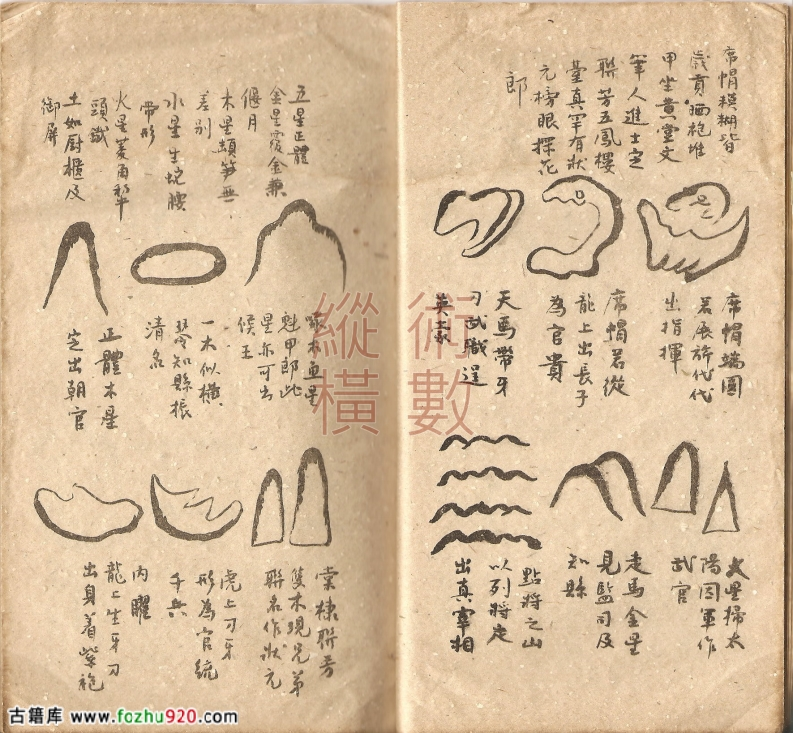 席帽模糊皆
歲貢晒袍堆
甲坐黄堂文
筆人進士定
聯芳五鳳樓
臺真罕有狀
元榜眼探花
郎
席帽端圓
若展旂代代
出指揮
席帽若從
龍上出長子
為官貴
天馬帶牙
刀武職逞
英豪
火星掃太
陽因軍作
武官
走馬金星
見監司及
知縣
點將之山
以列將定
出真宰相
五星正體
金星覆金兼
偃月
木星頓笋無
差別
水星生蛇腰
帶形
火星菱角犂
頭鐵
土如厨櫃及
御屏
啄木魚星
魁甲郎此
星亦可出
侯王
一木似横
琴知縣振
清名
正體木星
定出朝官
棠棣聯芳
隻木現兄弟
聯名作狀元
虎上刀牙
形為官統
千兵
内曜
龍上生牙刀
出身着紫袍
術數
縱橫
古籍库 www.fozhu920.com